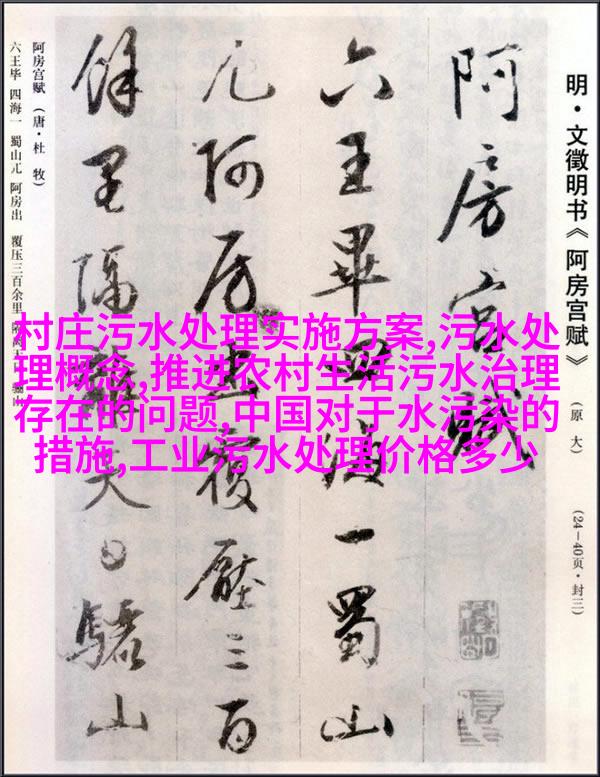 明·文徵明书《阿房宫赋》 (原大) (24—40页·封三)
阿房宫賦
六王畢四海一蜀山
兀阿房出覆壓三百
餘里隔離天日驪山
阿房宫赋(唐·杜牧)
六王毕 四海一 蜀山兀 阿房出 覆压三百余里 隔离天日 骊山
村庄污水处理实施方案,污水处
理概念,推进农村生活污水治理
存在的问题,中国对于水污染的
措施,工业污水处理价格多少